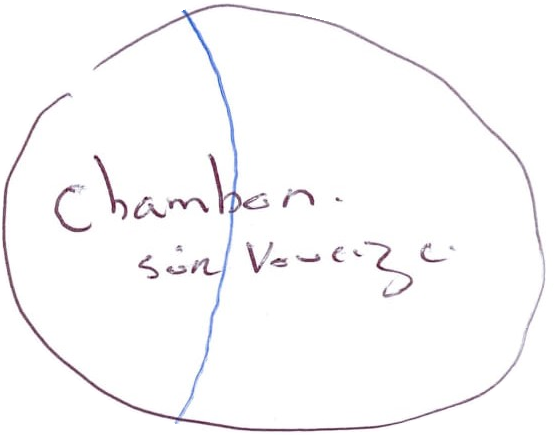 Chambon.
sur Voueize